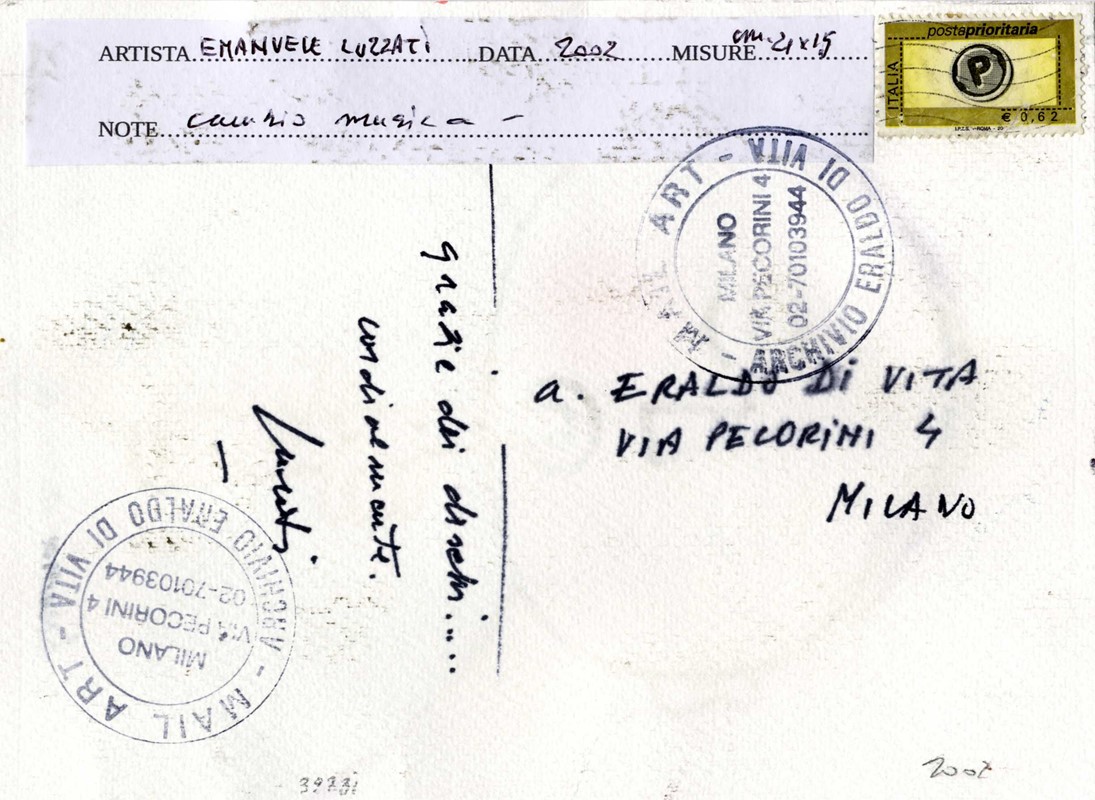 ARTISTA EMANUELE LUZZATI DATA 2002 MISURE cm. 21x15
NOTE cambio musica -
postaprioritaria
ITALIA
P
€ 0,62
I.P.Z.S. - ROMA
MAIL ART - ARCHIVIO ERALDO DI VITA -
MILANO
VIA PECORINI 4
02-70103944
grazie dei dischi.....
cordialmente.
Luzzati
a. ERALDO Di VITA
VIA PECORINI 4
MILANO
MAIL ART - ARCHIVIO ERALDO DI VITA -
MILANO
VIA PECORINI 4
02-70103944
2002